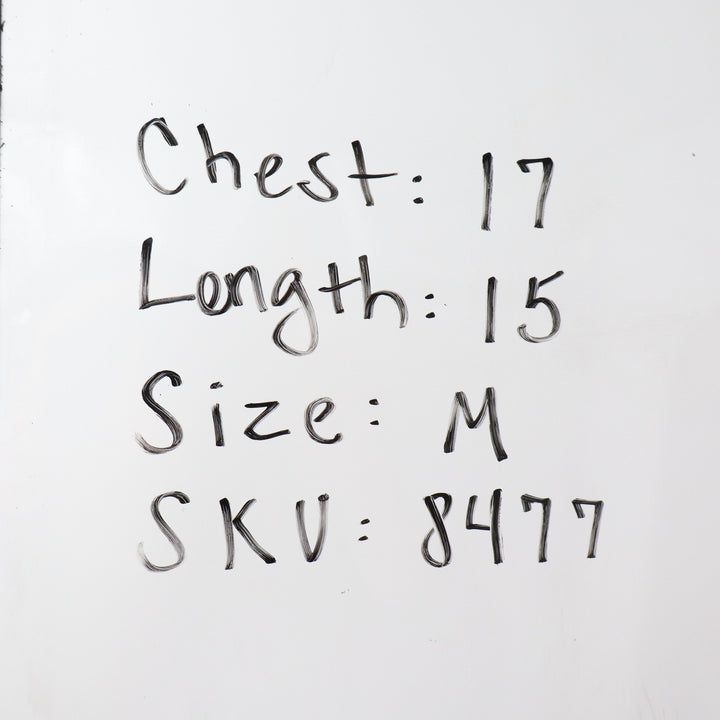 Chest: 17
Length: 15
Size: M
SKU: 8477